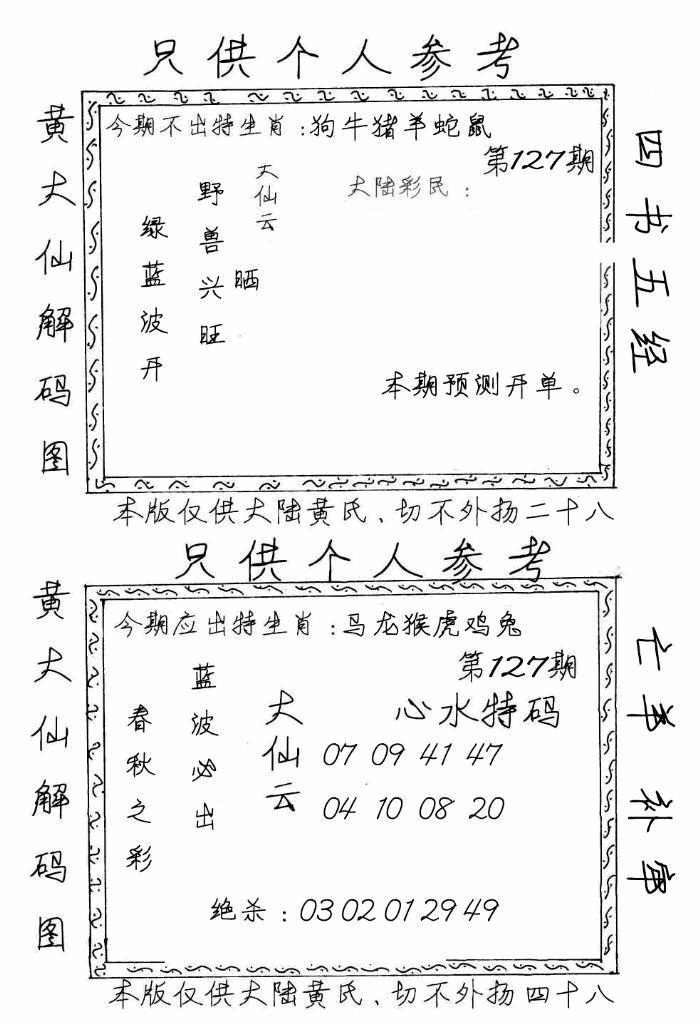 只供个人参考
黄大仙解码图
今期不出特生肖：狗牛猪羊蛇鼠
第127期
大仙云
大陆彩民：
野兽兴旺
晒
绿蓝波开
本期预测开单。
四书五经
本版仅供大陆黄氏、切不外扬二十八
只供个人参考
黄大仙解码图
今期应出特生肖：马龙猴虎鸡兔
第127期
蓝波必出
春秋之彩
大仙云
心水特码
07 09 41 47
04 10 08 20
绝杀：03 02 01 29 49
亡羊补牢
本版仅供大陆黄氏、切不外扬四十八